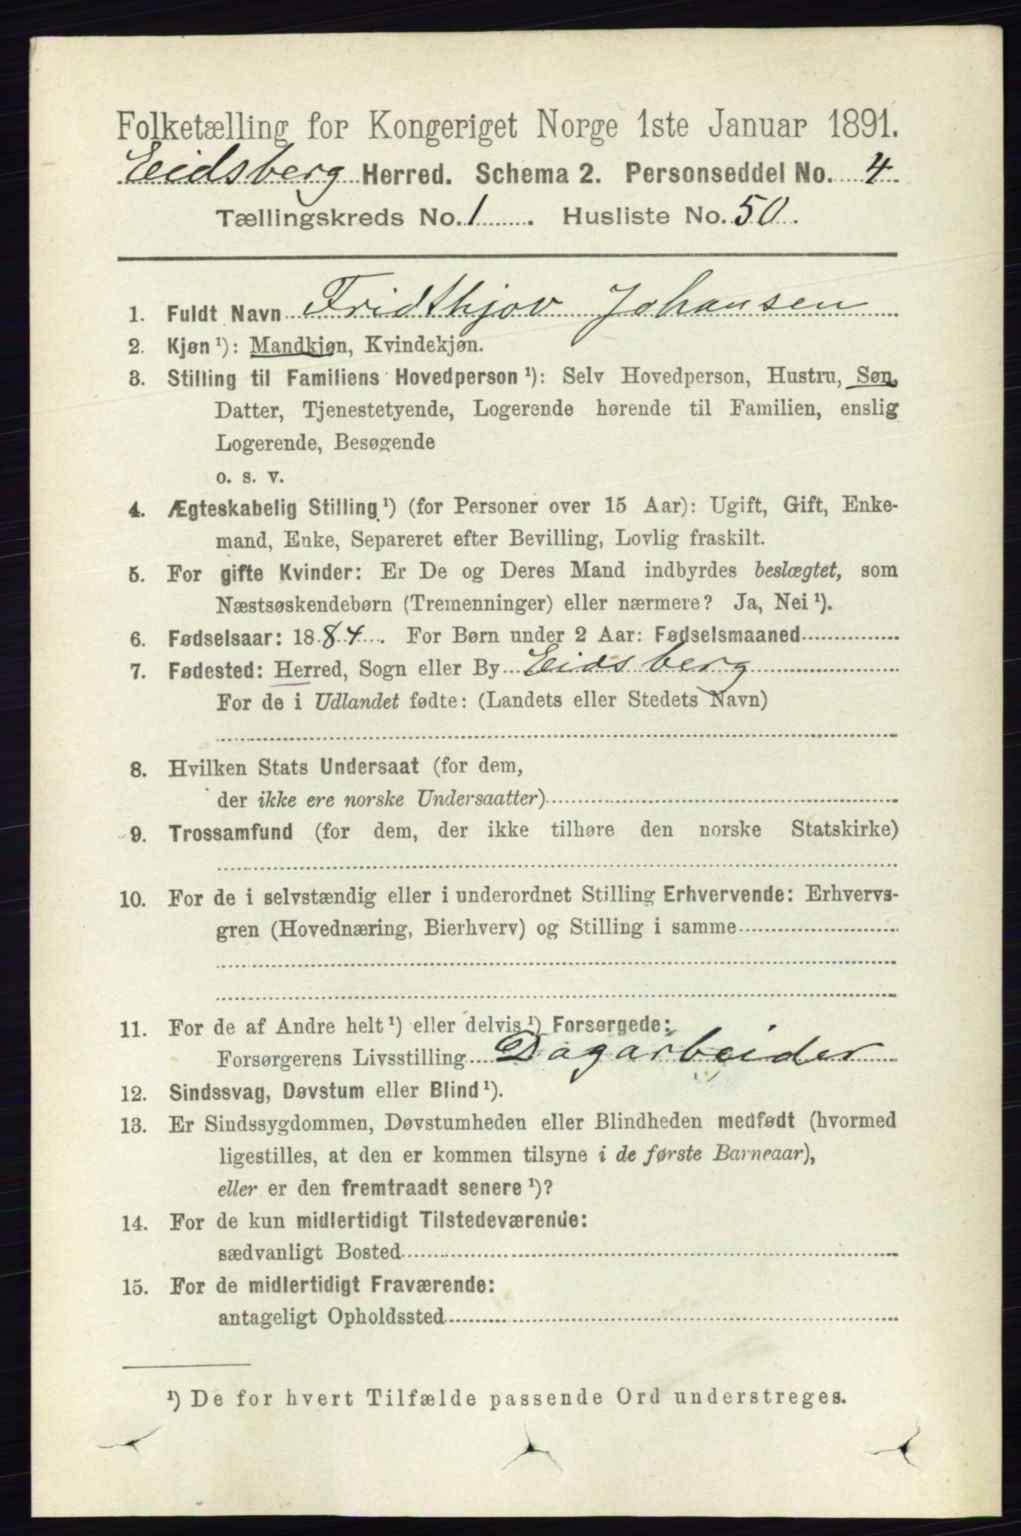 Folketælling for Kongeriget Norge 1ste Januar 1891.
Eidsberg Herred. Schema 2. Personseddel No. 4
Tællingskreds No. 1. Husliste No. 50.
1. Fuldt Navn Fridthjov Johansen
2. Kjøn ¹): Mandkjøn, Kvindekjøn.
3. Stilling til Familiens Hovedperson ¹): Selv Hovedperson, Hustru, Søn,
Datter, Tjenestetyende, Logerende hørende til Familien, enslig
Logerende, Besøgende
o. s. v.
4. Ægteskabelig Stilling ¹) (for Personer over 15 Aar): Ugift, Gift, Enke-
mand, Enke, Separeret efter Bevilling, Lovlig fraskilt.
5. For gifte Kvinder: Er De og Deres Mand indbyrdes beslægtet, som
Næstsøskendebørn (Tremenninger) eller nærmere? Ja, Nei ¹).
6. Fødselsaar: 1884. For Børn under 2 Aar: Fødselsmaaned
7. Fødested: Herred, Sogn eller By Eidsberg
For de i Udlandet fødte: (Landets eller Stedets Navn)
8. Hvilken Stats Undersaat (for dem,
der ikke ere norske Undersaatter)
9. Trossamfund (for dem, der ikke tilhøre den norske Statskirke)
10. For de i selvstændig eller i underordnet Stilling Erhvervende: Erhvervs-
gren (Hovednæring, Bierhverv) og Stilling i samme
11. For de af Andre helt ¹) eller delvis ¹) Forsørgede:
Forsørgerens Livsstilling Dagarbeider
12. Sindssvag, Døvstum eller Blind ¹).
13. Er Sindssygdommen, Døvstumheden eller Blindheden medfødt (hvormed
ligestilles, at den er kommen tilsyne i de første Barneaar),
eller er den fremtraadt senere ¹)?
14. For de kun midlertidigt Tilstedeværende:
sædvanligt Bosted
15. For de midlertidigt Fraværende:
antageligt Opholdssted
¹) De for hvert Tilfælde passende Ord understreges.